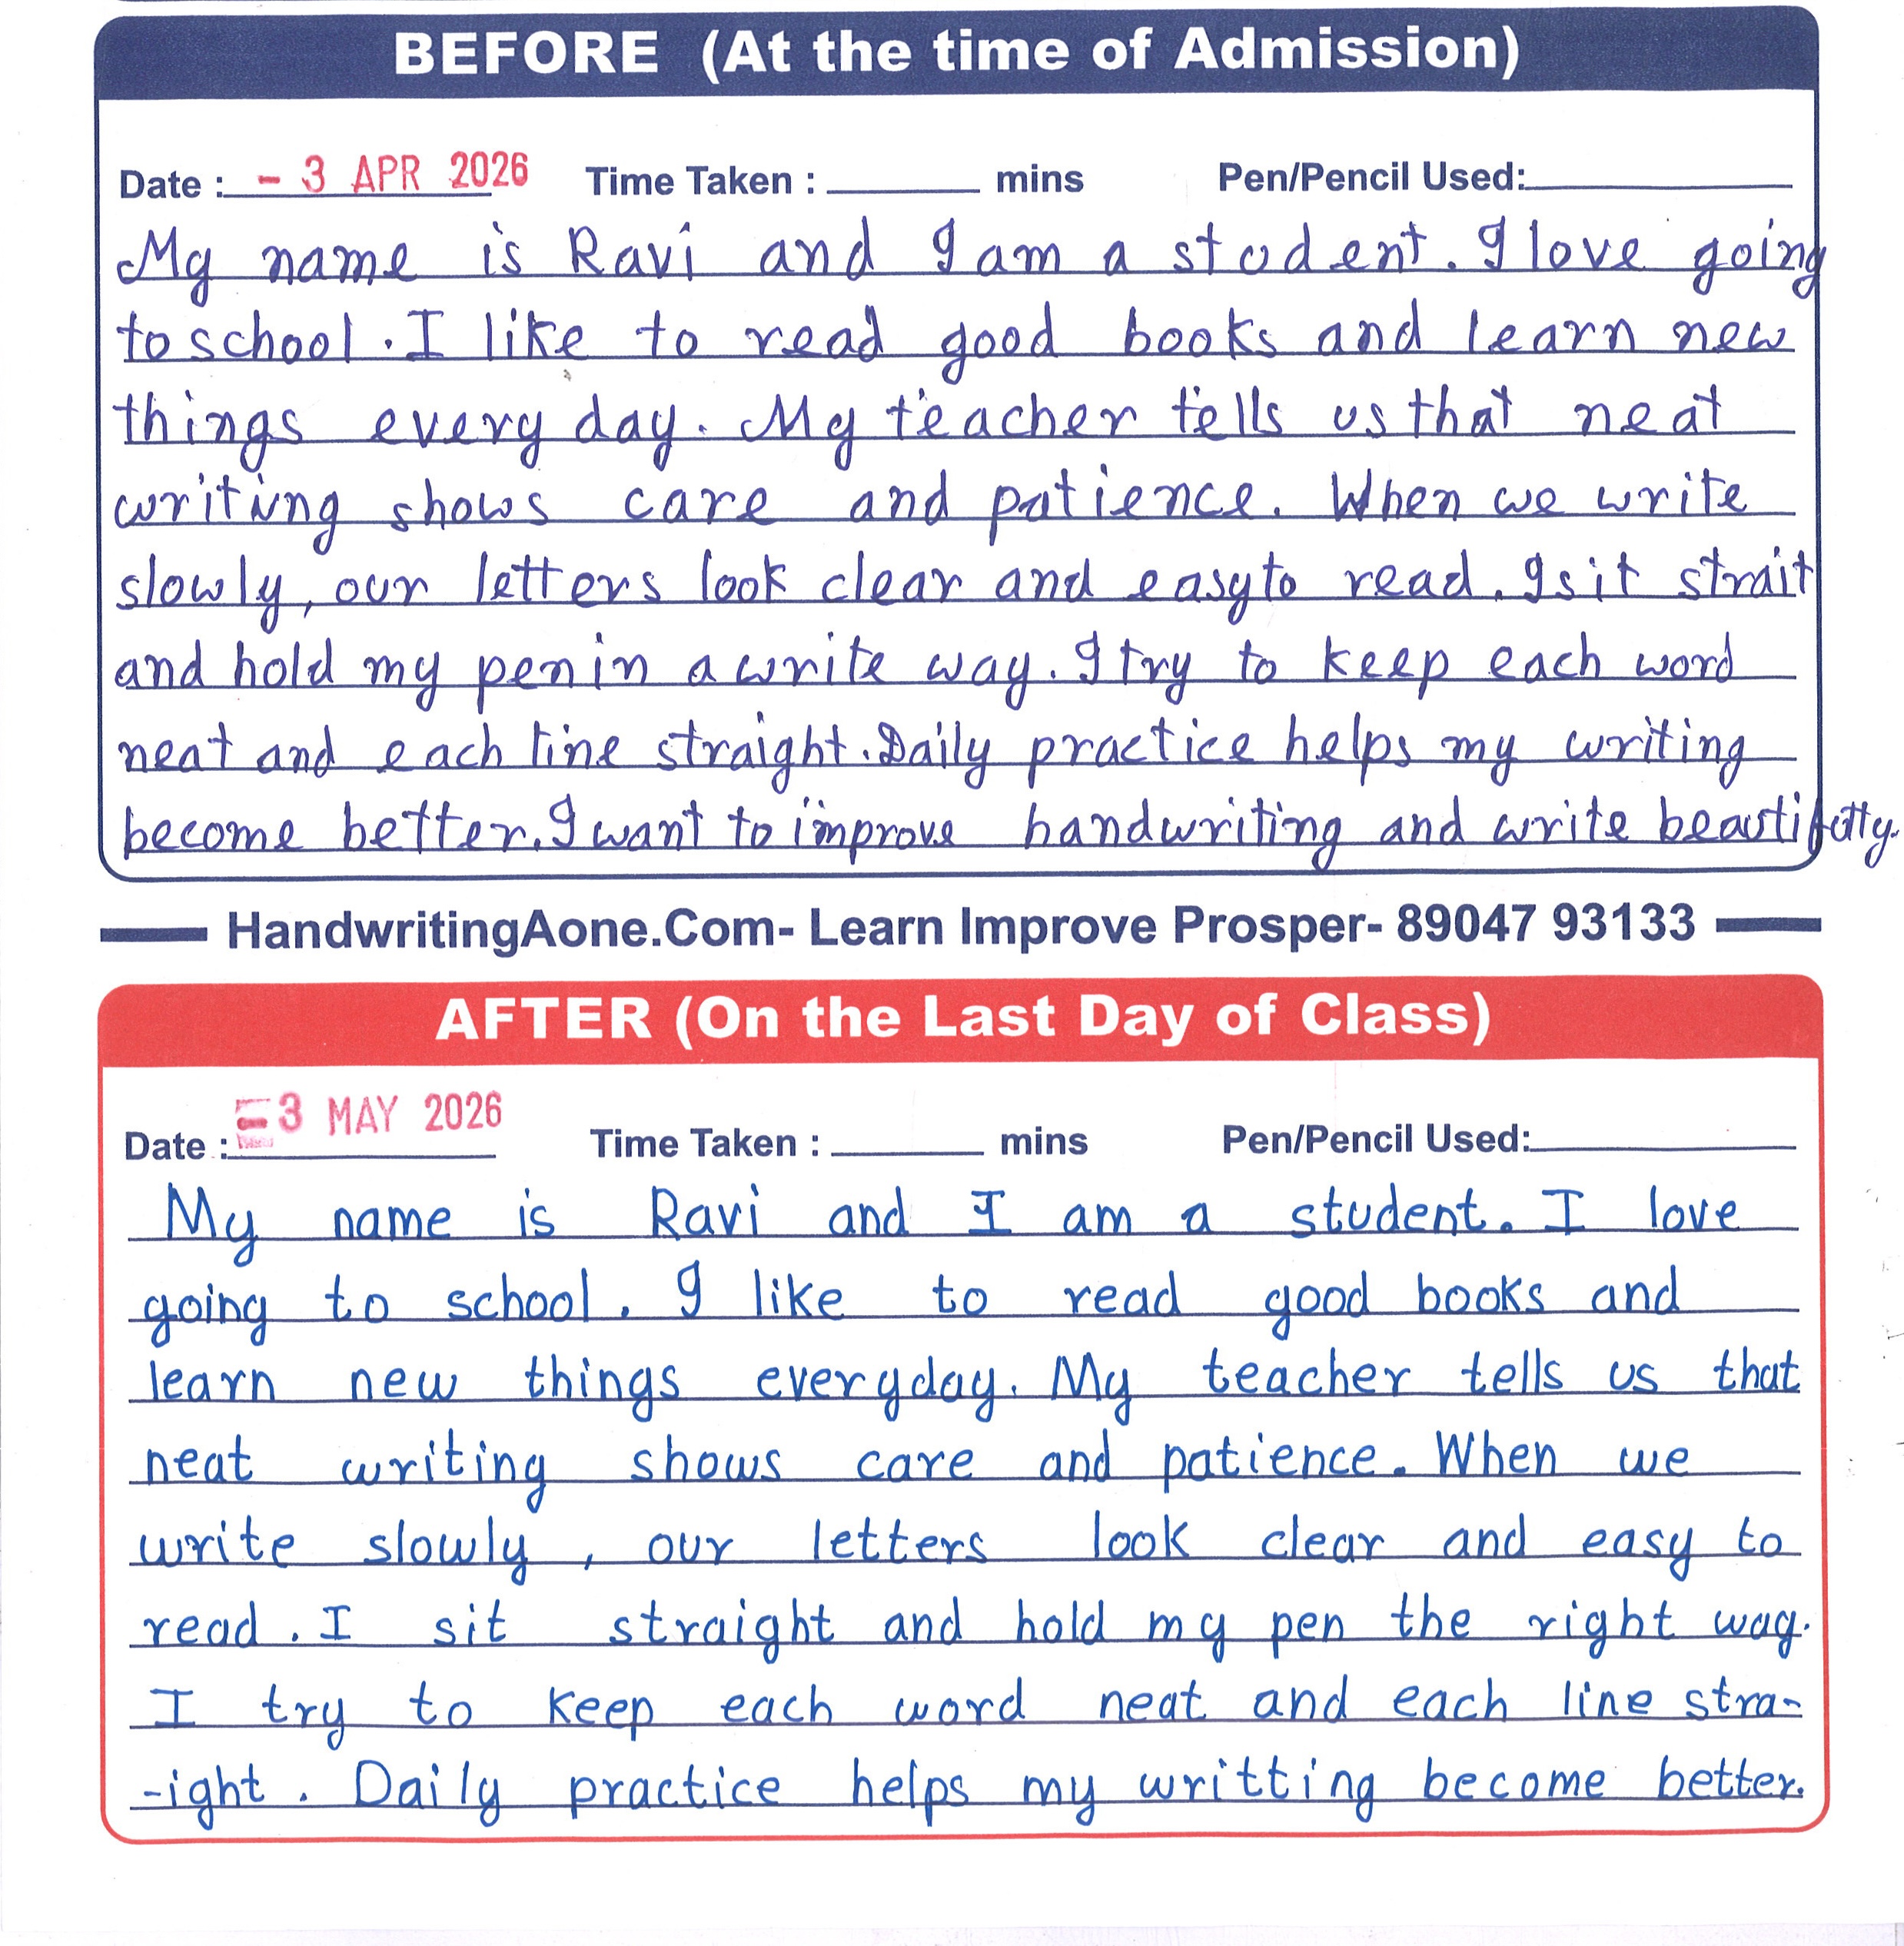 BEFORE (At the time of Admission)
Date : - 3 APR 2026 Time Taken : ______ mins Pen/Pencil Used:______
My name is Ravi and I am a student. I love going
to school. I like to read good books and learn new
things every day. My teacher tells us that neat
writing shows care and patience. When we write
slowly, our letters look clear and easy to read. I sit strait
and hold my pen in a write way. I try to keep each word
neat and each line straight. Daily practice helps my writing
become better. I want to improve handwriting and write
HandwritingAone.Com- Learn Improve Prosper- 89047 93133
AFTER (On the Last Day of Class)
Date : 3 MAY 2026 Time Taken : ______ mins Pen/Pencil Used:______
My name is Ravi and I am a student. I love
going to school. I like to read good books and
learn new things everyday. My teacher tells us that
neat writing shows care and patience. When we
write slowly, our letters look clear and easy to
read. I sit straight and hold my pen the right way.
I try to keep each word neat and each line stra-
-ight. Daily practice helps my writting become better.